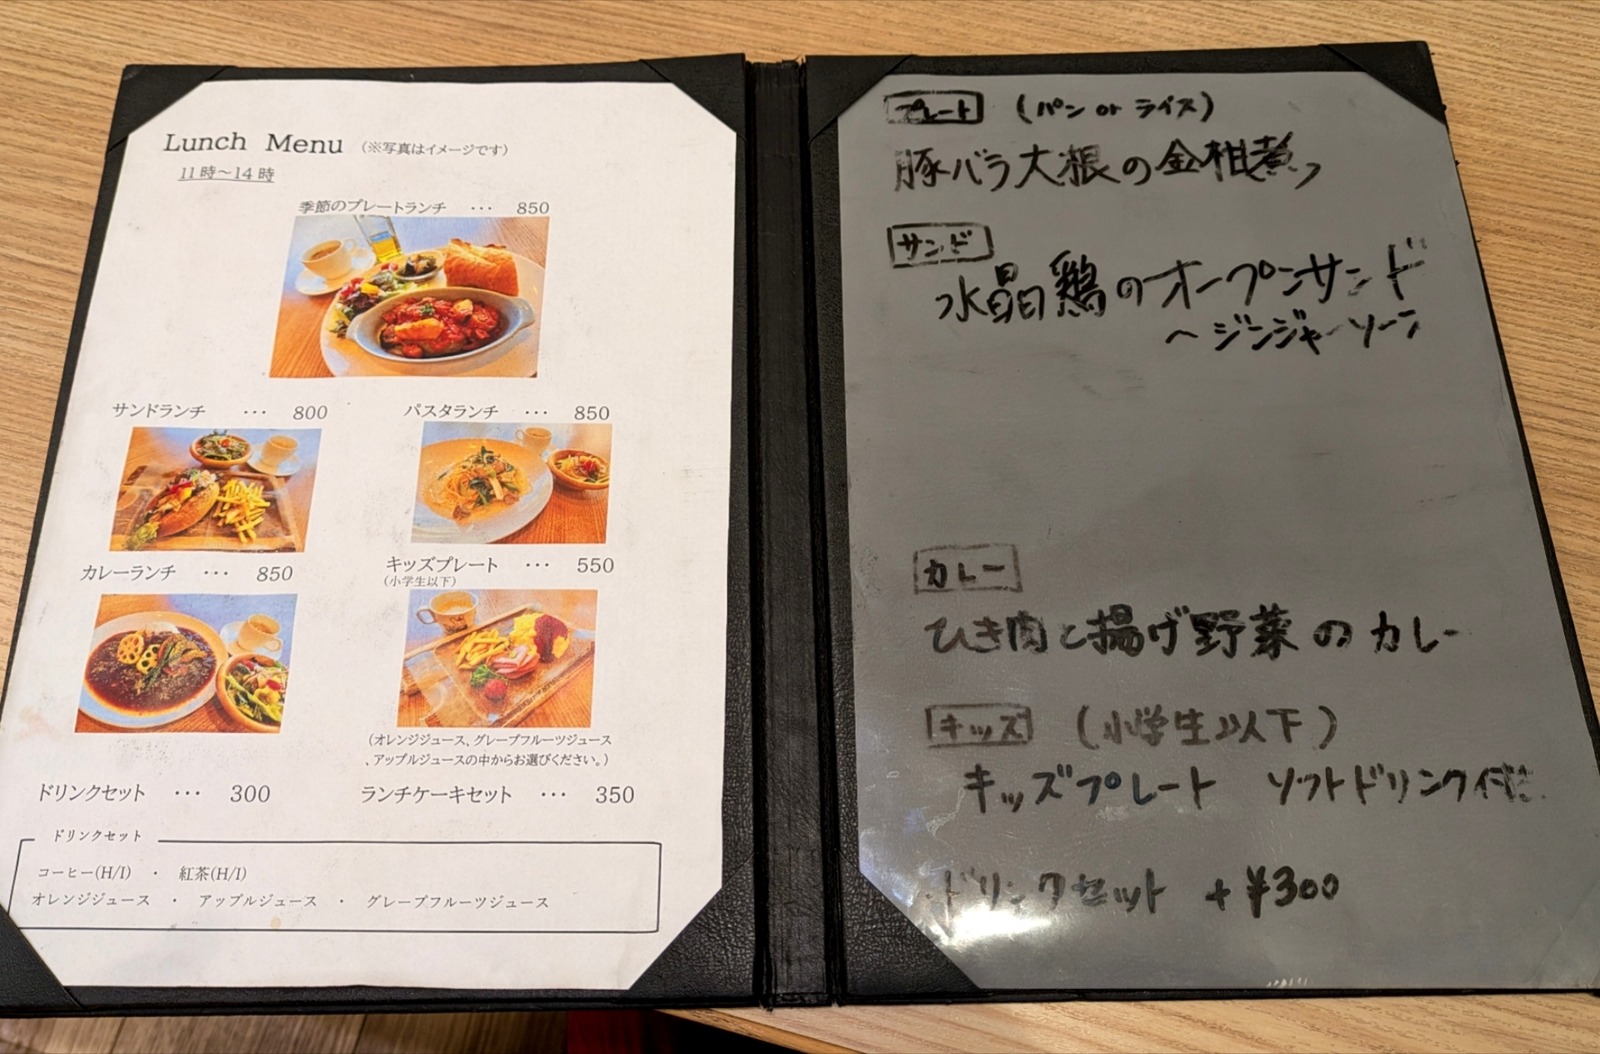 Lunch Menu (※写真はイメージです)
11時～14時
季節のプレートランチ ··· 850
サンドランチ ··· 800
パスタランチ ··· 850
カレーランチ ··· 850
キッズプレート ··· 550
(小学生以下)
(オレンジジュース、グレープフルーツジュース
、アップルジュースの中からお選びください。)
ドリンクセット ··· 300
ランチケーキセット ··· 350
ドリンクセット
コーヒー(H/I) ・ 紅茶(H/I)
オレンジジュース ・ アップルジュース ・ グレープフルーツジュース
プレート (パン or ライス)
豚バラ大根の金柑煮
サンド
水晶鶏のオープンサンド
～ジンジャーソース
カレー
ひき肉と揚げ野菜のカレー
キッズ (小学生以下)
キッズプレート ソフトドリンク付
ドリンクセット +¥300